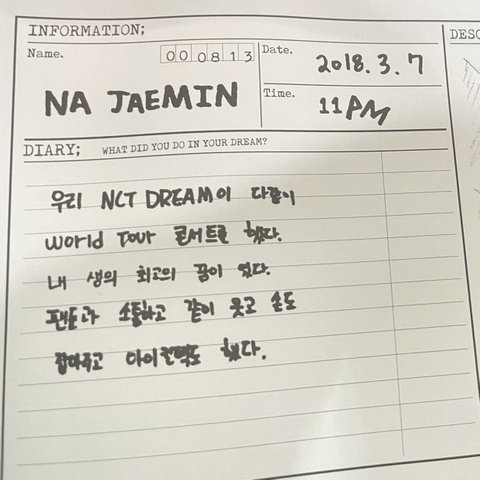 INFORMATION;
DESC
Name.
000813
Date.
2018.3.7
NA JAEMIN
Time.
11PM
DIARY; WHAT DID YOU DO IN YOUR DREAM?
우리 NCT DREAM이 다같이
world Tour 콘서트를 했다.
내 생의 최고의 꿈이 였다.
팬들과 소통하고 같이 웃고 손도
잡아주고 아이컨택도 했다.